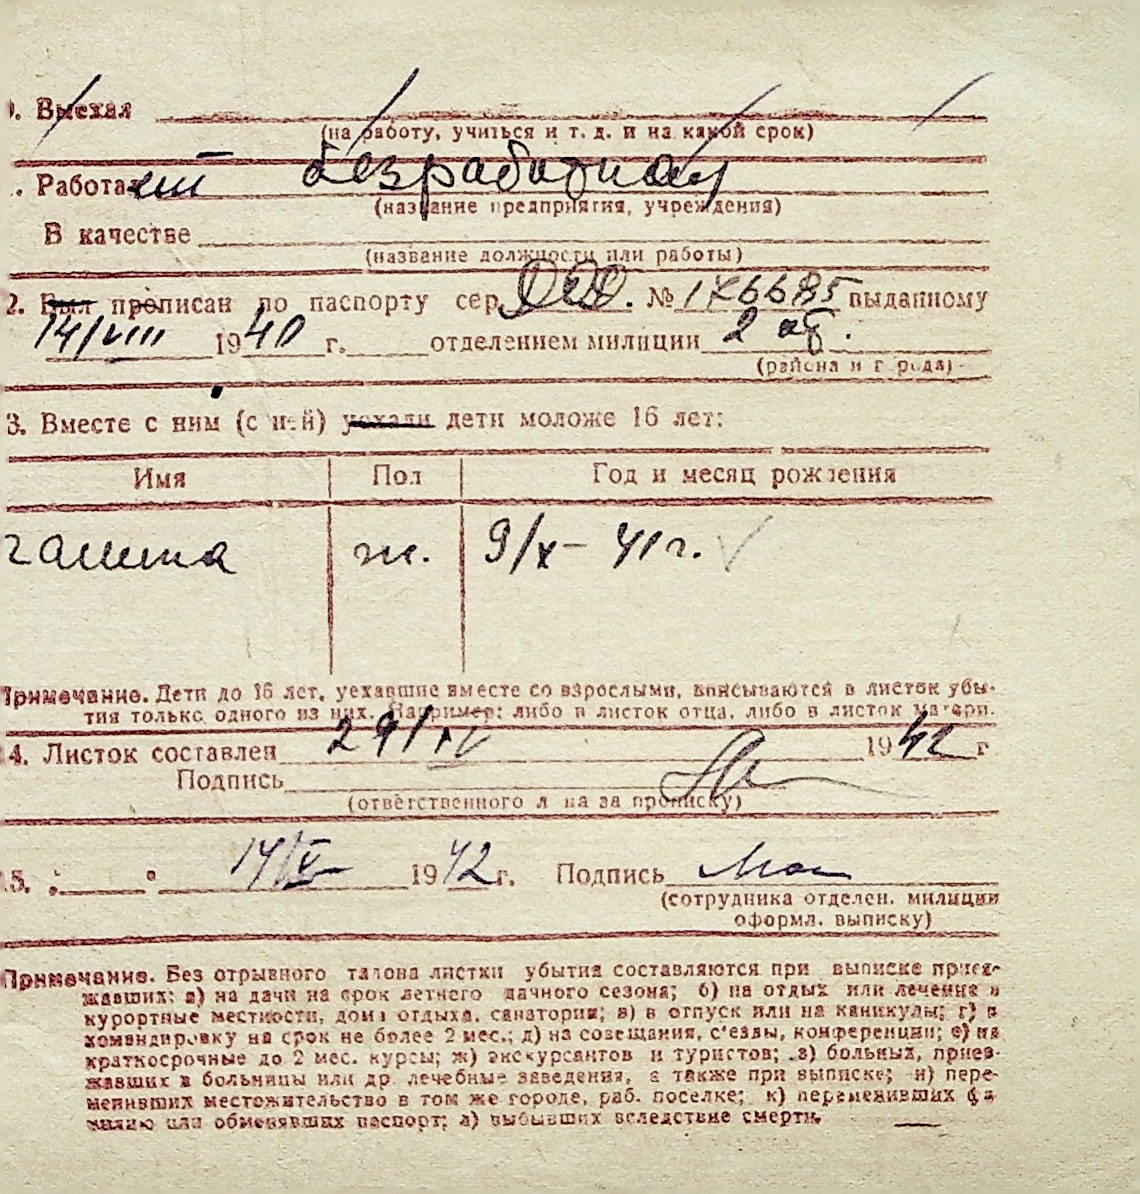 Выехал
(на работу, учиться и т. д. и на какой срок)
Работает безработная
(название предприятия, учреждения)
В качестве
(название должности или работы)
2. Был прописан по паспорту сер. № 176685 выданному
14/VIII 1940 г. отделением милиции 2 об.
(района и города)
3. Вместе с ним (с ней) уехали дети моложе 16 лет:
Имя Пол Год и месяц рождения
галина ж. 9/X – 41 г.
Примечание. Дети до 16 лет, уехавшие вместе со взрослыми, вписываются в листок убы-
тия только одного из них. Например: либо в листок отца, либо в листок матери.
4. Листок составлен 29/IV 1942 г
Подпись
(ответственного лица за прописку)
5. 14/V 1942 г. Подпись
(сотрудника отделен. милиции
оформл. выписку)
Примечание. Без отрывного талона листки убытия составляются при выписке приез-
жавших: а) на дачи на срок летнего дачного сезона; б) на отдых или лечение в
курортные местности, дома отдыха, санатории; в) в отпуск или на каникулы; г) в
командировку на срок не более 2 мес.; д) на совещания, с'езды, конференции; е) на
краткосрочные до 2 мес. курсы; ж) экскурсантов и туристов; з) больных, приез-
жавших в больницы или др. лечебные заведения, а также при выписке; и) пере-
менивших местожительство в том же городе, раб. поселке; к) переменивших фа
милию или обменявших паспорт; л) выбывших вследствие смерти.